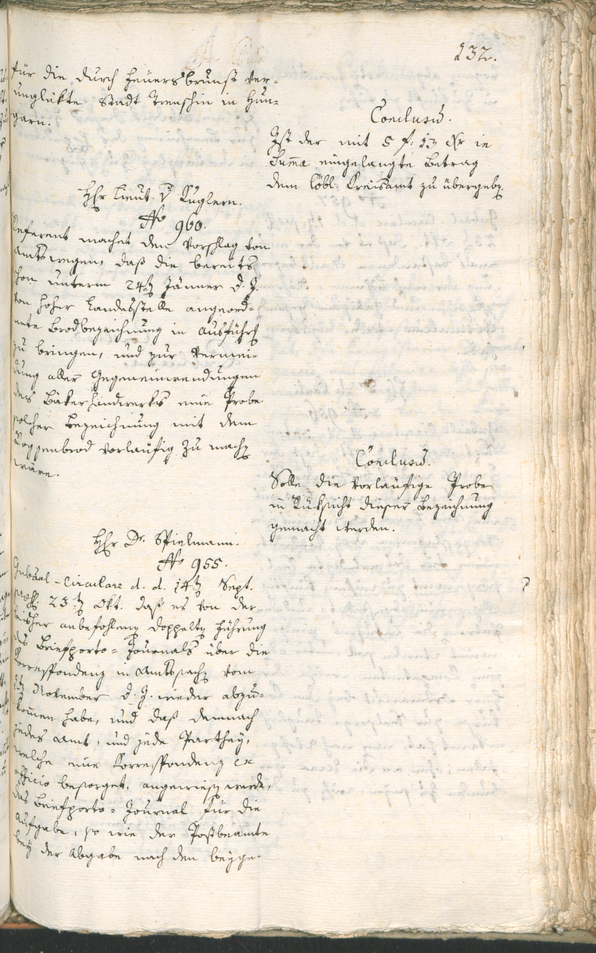 232.
für die durch Feuersbrunst ver-
unglükte Stadt Trenshin in Hun-
garn.
Conclusum.
Ist der mit 5 f. 12 Xr in
Summa eingelangte Betrag
dem Löbl: Kreisamt zu übergeben.
Hhr Lieut. v Kuglern.
No 960.
Referent machet den Vorschlag von
Amtswegen, daß die bereits
schon unterm 24ten Jänner d. J.
von hoher Landesstelle angeord-
nete Brodbezeichnung in Ausführung
zu bringen, und zur Vermei-
dung aller Gegeneinwendungen
des Bäkerhandwerks eine Probe
solcher Bezeichnung mit dem
Roggenbrod vorläufig zu machen
wäre.
Conclusum.
Solle die vorläufige Probe
in Rüksicht dieser Bezeichnung
gemacht werden.
Hhr Dr. Spielmann.
No 955.
Gubernial-Circulare d. d. 14ten Sept.
23ten Okt. daß es von der
bisher anbefohlenen doppelten Führung
des Briefporto-Journals über die
Correspondenz in Amtssachen vom
November d. J. wieder abzu-
kommen habe, und daß demnach
jedes Amt, und jede Parthey,
welche eine Correspondenz ex
officio besorget, angewiesen werde,
das Briefporto-Journal für die
Aufgabe, so wie der Postbeamte
bey der Abgabe nach den beyge-